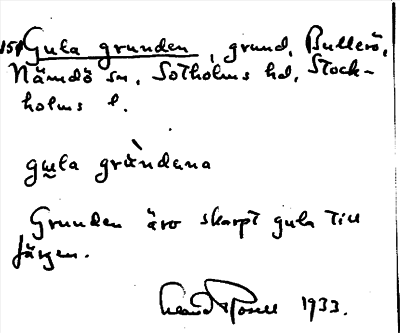 Gula grunden, grund, Bullerö,
Nämdö sn, Sotholms hd, Stock-
holms l.
gu̯la gràndana
Grunden äro skarpt gula till
färgen.
1933.